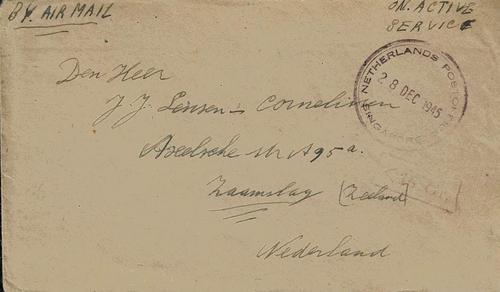 BY. AIR MAIL
ON. ACTIVE
SERVICE
NETHERLANDS POSTOFFICE
28 DEC 1945
Den Heer
J. J. Cornelissen
Axelsche str A95a.
Zaamslag (Zeeland)
Nederland